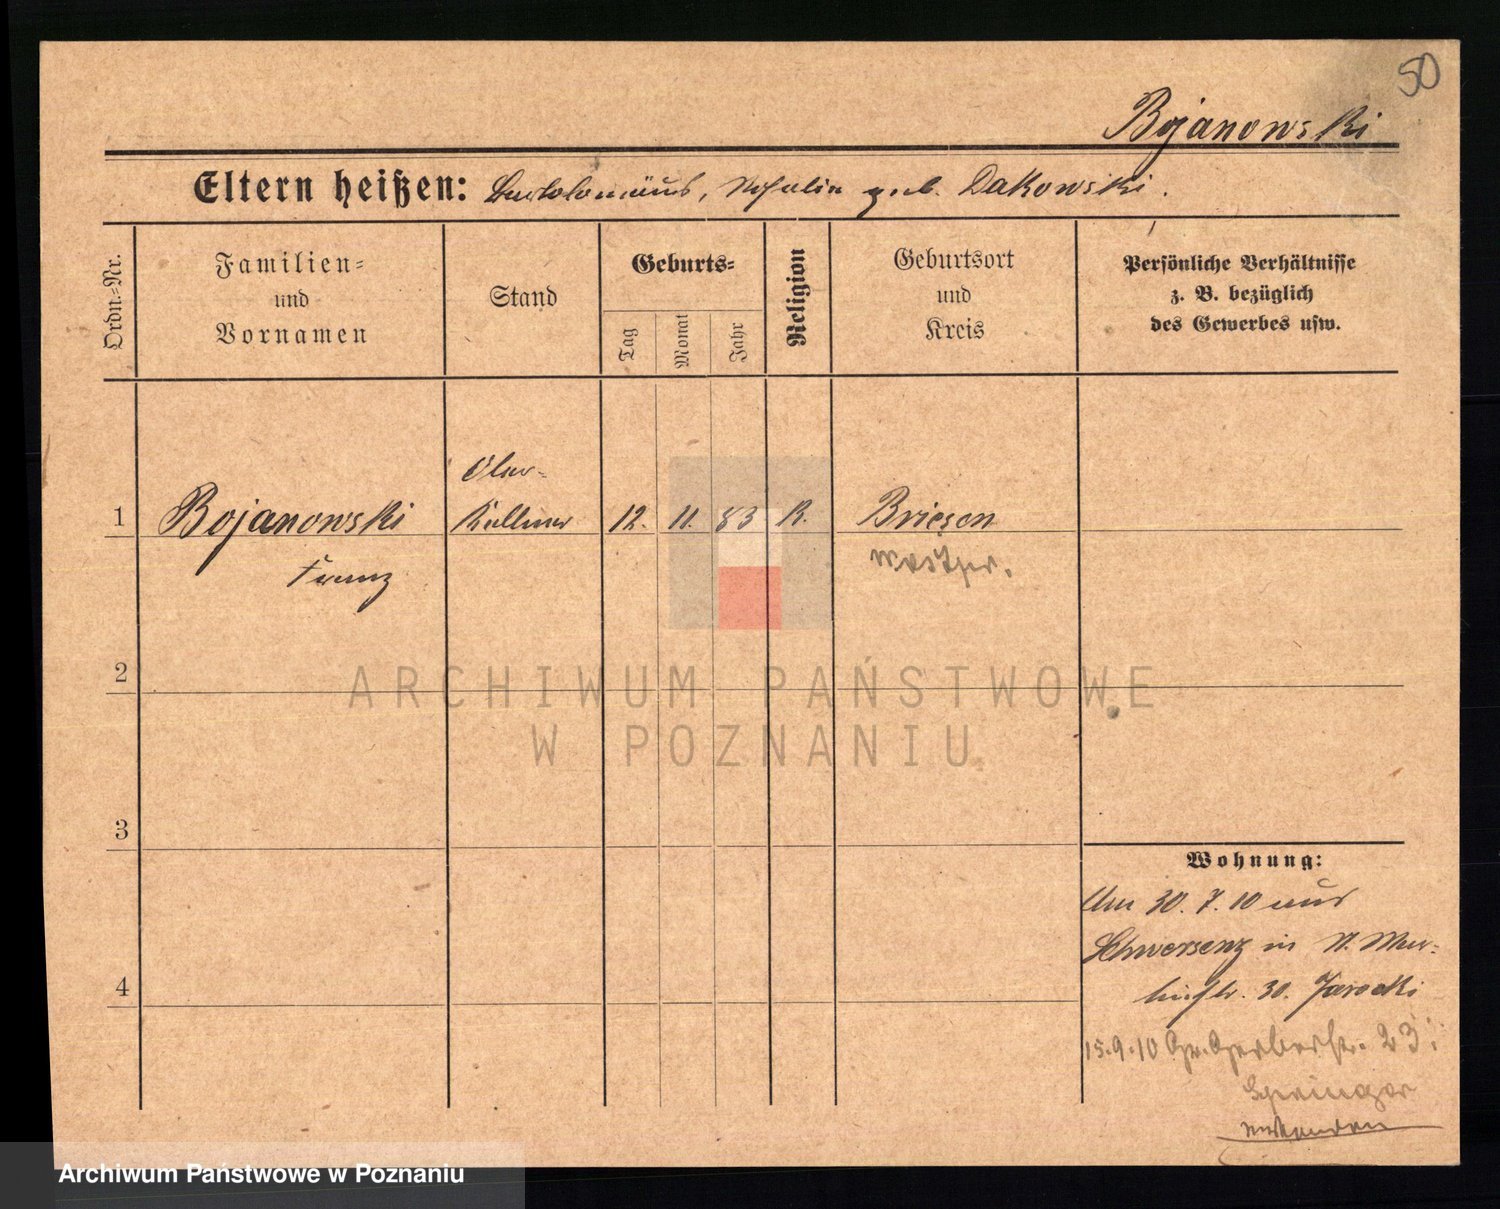 50
Bojanowski
Eltern heißen: Bartolomäus, Rosalia geb. Dakowski.
Ordn.-Nr.
Familien-
und
Vornamen
Stand
Geburts-
Tag
Monat
Jahr
Religion
Geburtsort
und
Kreis
Persönliche Verhältnisse
z. B. bezüglich
des Gewerbes usw.
Ober-
1 Bojanowski Kellner 12. 11. 83 K. Briesen
Franz
Westpr.
2
3
4
Wohnung:
Am 30. 7. 10 aus
Schwersenz in St. Mar-
tinstr. 30. Jarocki
15.9.10 Gr. Gerberstr. 23.
Springer
ARCHIWUM PAŃSTWOWE
W POZNANIU
Archiwum Państwowe w Poznaniu